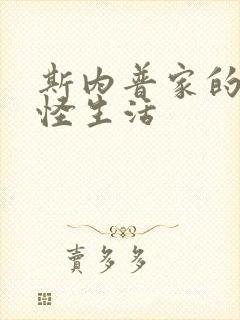 斯内普家的
怪生活
賣多多